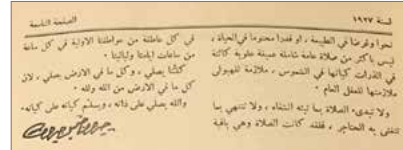 لسنة ١٩٢٧
الصفحة التاسعة
نحوا وغرضا في الطبيعة ، او قصدا محتوما في الحياة ،
ليس باكثر من صلاة عامة شاملة عميقة علوية كائنة
في الذرات كيانها في الشموس ، ملازمة للهيولى
ملازمتها للعقل العام .
ولا تبتدىء الصلاة بما تبثه الشفاه ، ولا تنتهي بما
تتغنى به الحناجر ، فلقد كانت الصلاة وهي باقية
في كل عاطفة من عواطفنا الاولية في كل ساعة
من ساعات ايامنا وليالينا .
كلنا يصلي ، وكل ما في الارض يصلي ، لان
كل ما في الارض من الله ولله .
والله يصلي على ذاته ، ويسلم كيانه على كيانه .